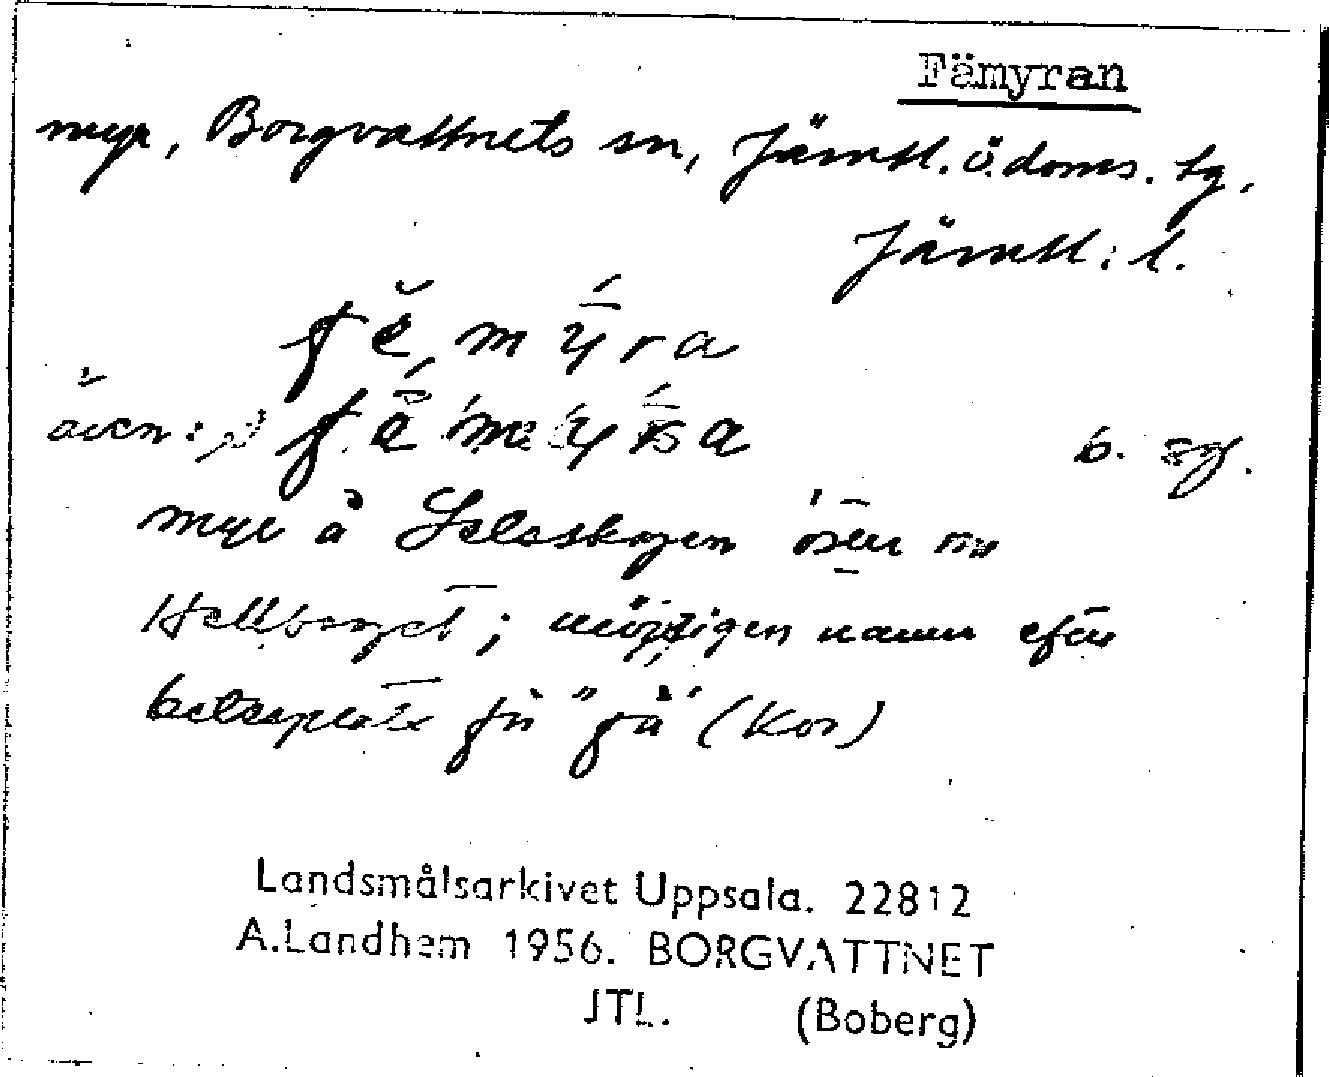 Fämyran
myr, Borgvattnets sn, Jämtl. ö. doms. tg,
Jämtl: l.
fĕmýra
även: fämyra b. sg.
myr å Selsskogen öster om
Hällberget; möjligen namn efter
betesplats för "fä" (Kor)
Landsmålsarkivet Uppsala. 22812
A.Landhem 1956. BORGVATTNET
JTL. (Boberg)